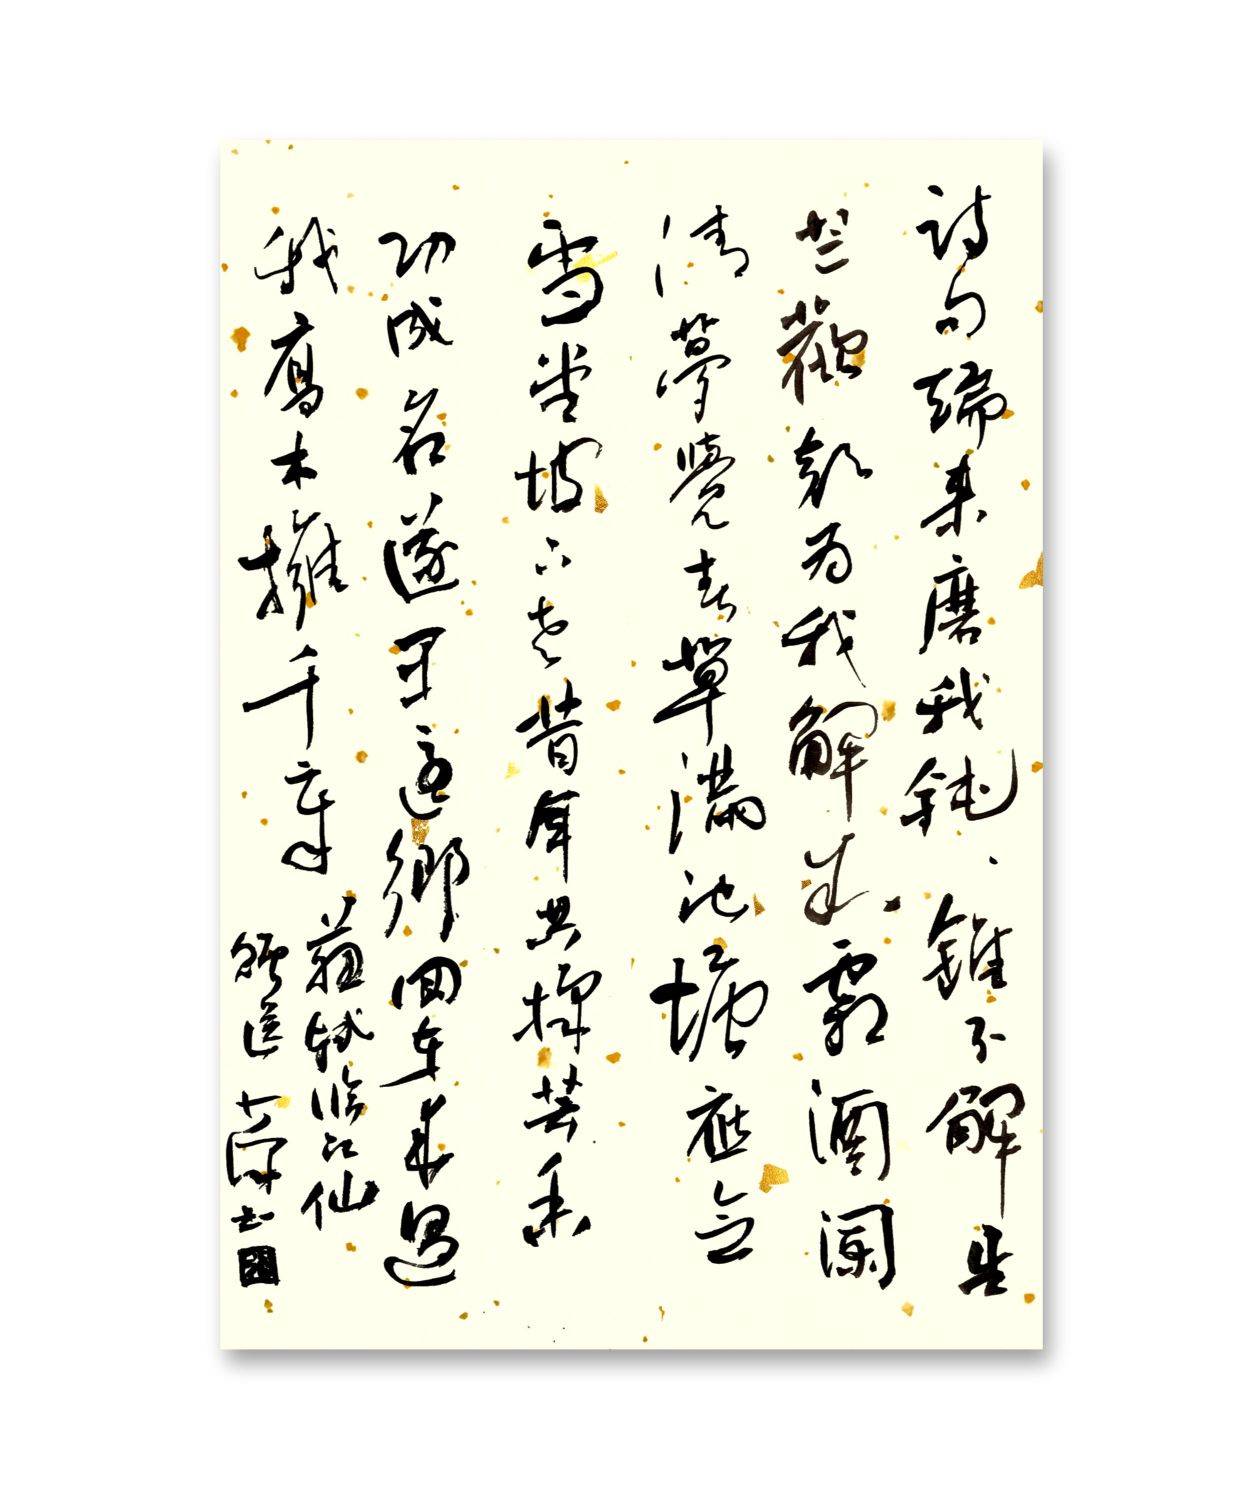 詩句端来磨我鈍、錐不解生
芒歡顔为我解冰霜酒闌
清夢覺春草滿池塘應念
雪堂坡下老昔年共採芸香
功成名遂早還鄉回車来過
我喬木擁千章
蘇軾臨江仙